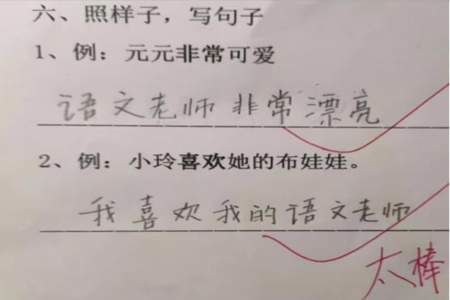 六、照样子，写句子
1、例：元元非常可爱
语文老师非常漂亮
2、例：小玲喜欢她的布娃娃。
我喜欢我的语文老师
太棒